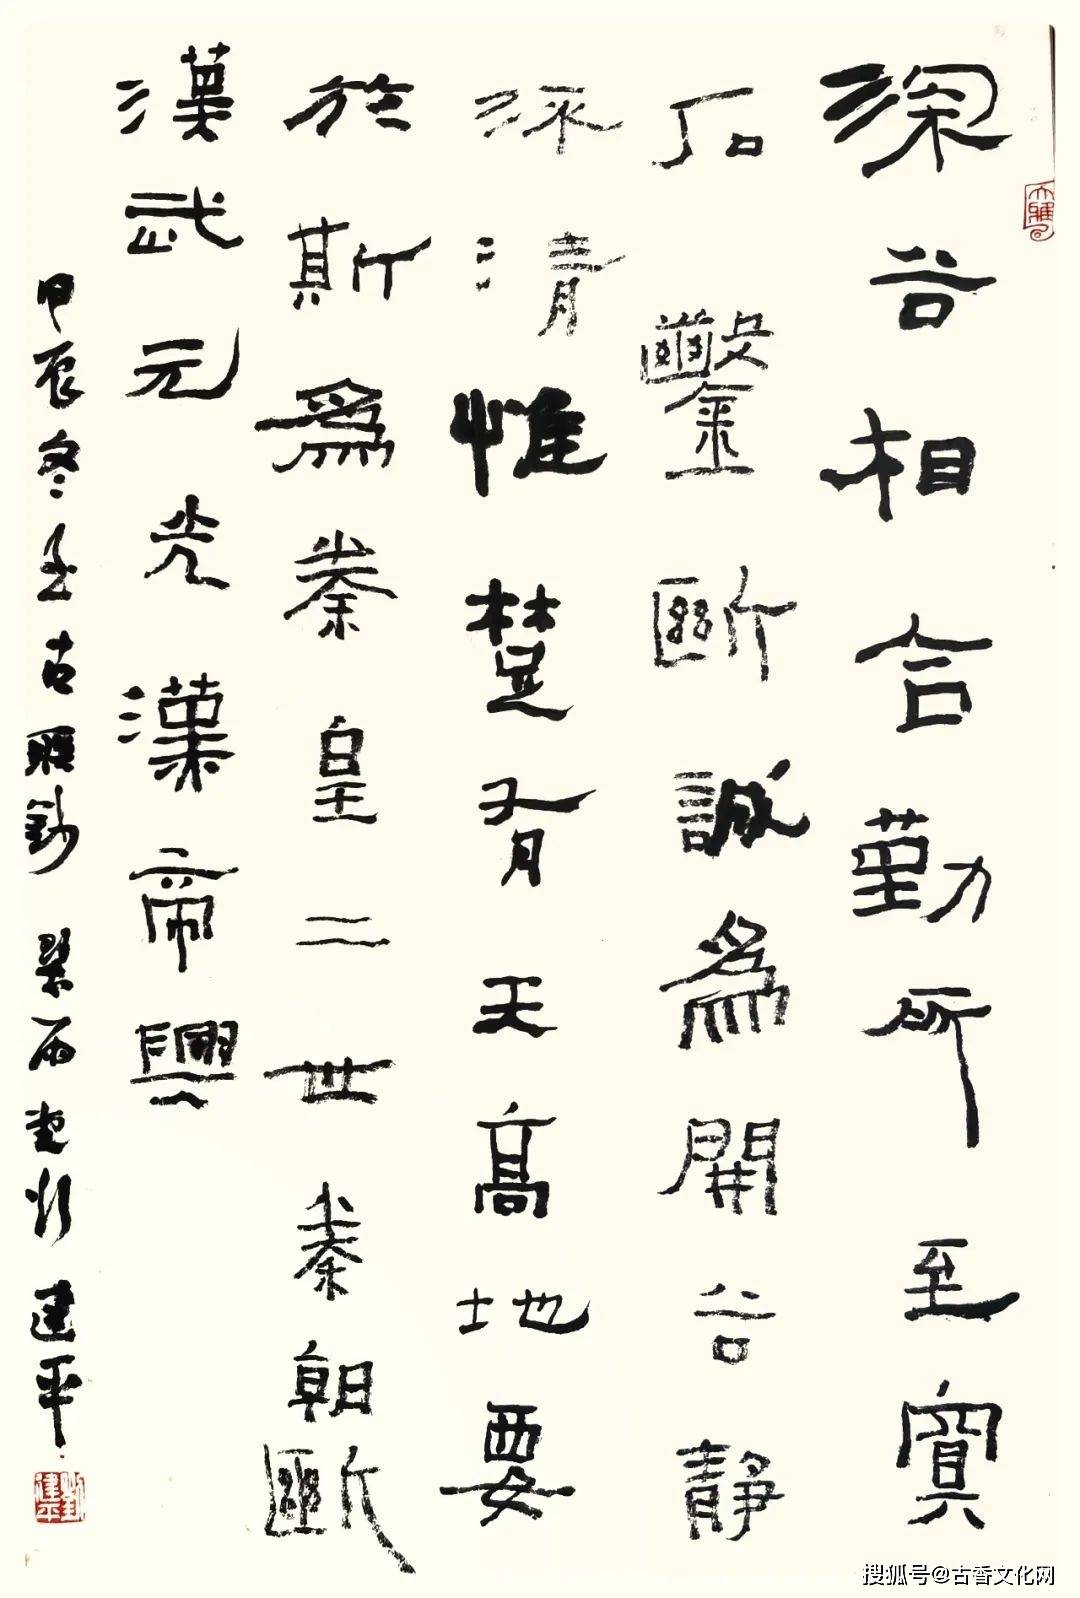 深谷相合勤所至寘
石鑿斷誠爲開谷靜
泳清惟楚有王高地要
於斯爲秦皇二世秦朝斷
漢武元光漢帝興
甲辰冬至古聯鈔 建平
搜狐号@古香文化网